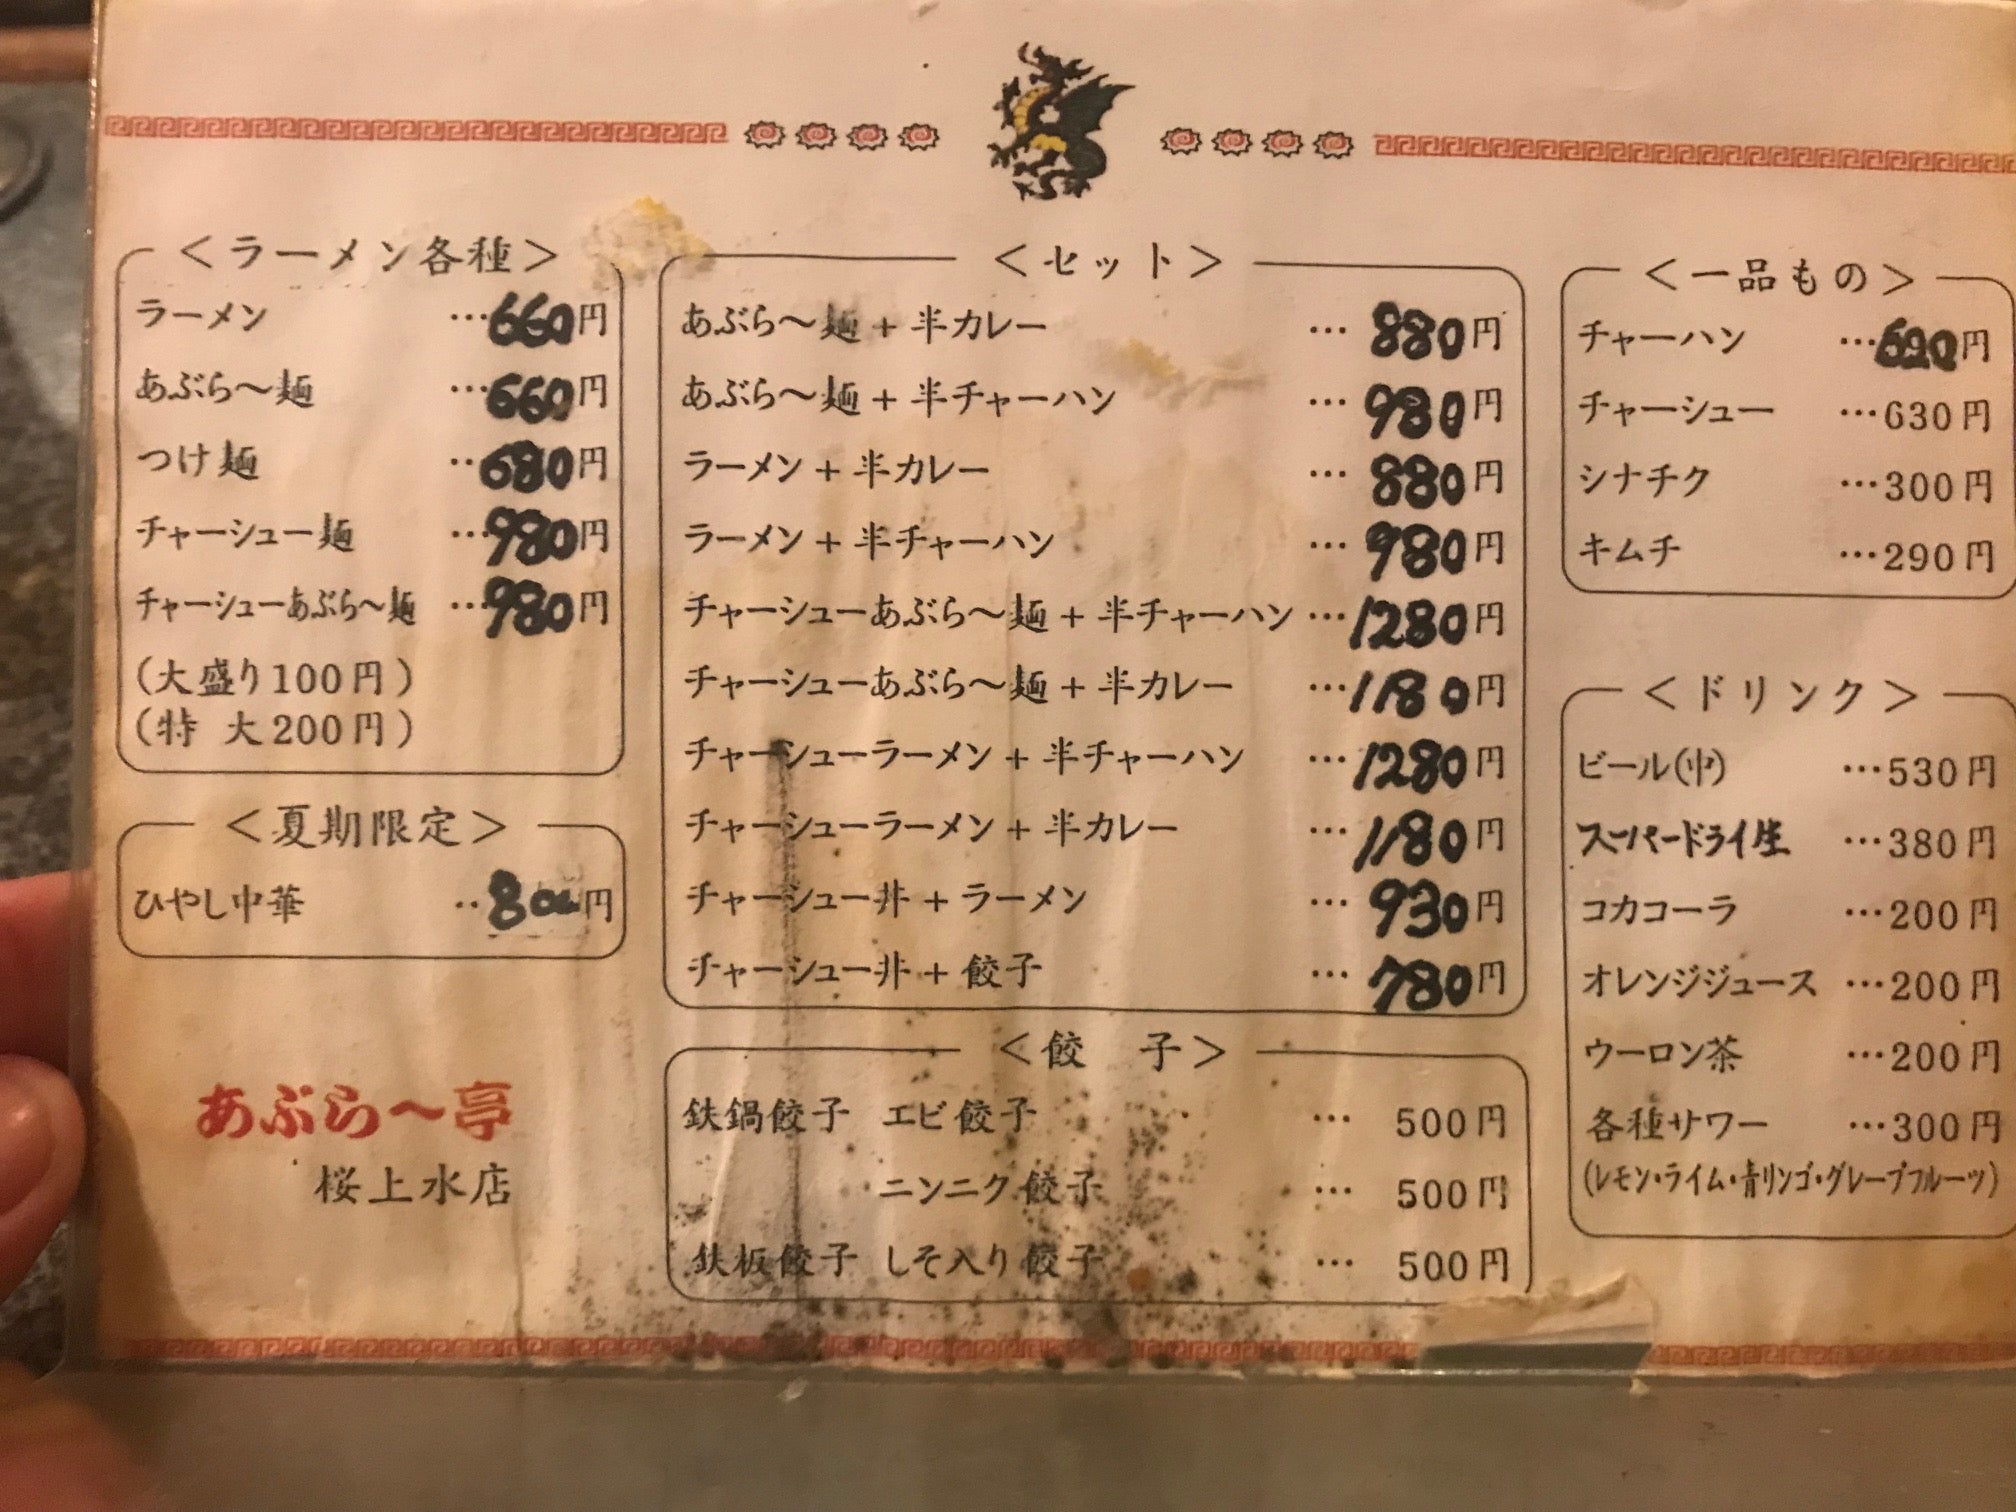 <ラーメン各種>
ラーメン …660円
あぶら〜麺 …660円
つけ麺 ‥680円
チャーシュー麺 …980円
チャーシューあぶら〜麺 …980円
(大盛り100円)
(特 大200円)
<夏期限定>
ひやし中華 ‥800円
あぶら〜亭
桜上水店
<セット>
あぶら〜麺 + 半カレー … 880円
あぶら〜麺 + 半チャーハン … 980円
ラーメン + 半カレー … 880円
ラーメン + 半チャーハン … 980円
チャーシューあぶら〜麺 + 半チャーハン …1280円
チャーシューあぶら〜麺 + 半カレー …1180円
チャーシューラーメン + 半チャーハン …1280円
チャーシューラーメン + 半カレー …1180円
チャーシュー丼 + ラーメン … 930円
チャーシュー丼 + 餃子 … 780円
<餃 子>
鉄鍋餃子 エビ餃子 … 500円
ニンニク餃子 … 500円
鉄板餃子 しそ入り餃子 … 500円
<一品もの>
チャーハン …690円
チャーシュー …630円
シナチク …300円
キムチ …290円
<ドリンク>
ビール(中) …530円
スーパードライ生 …380円
コカコーラ …200円
オレンジジュース …200円
ウーロン茶 …200円
各種サワー …300円
(レモン・ライム・青リンゴ・グレープフルーツ)